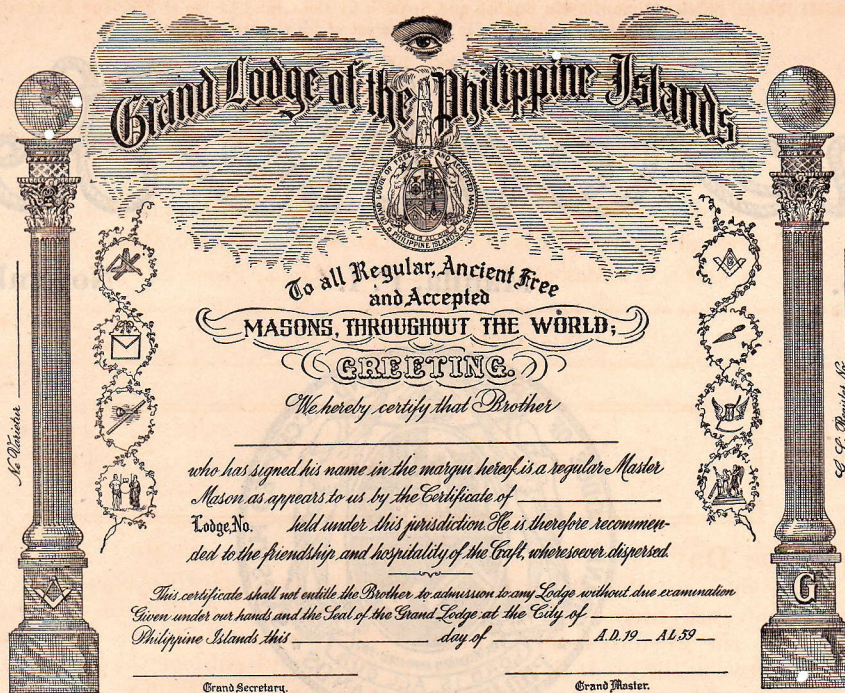 Grand Lodge of the Philippine Islands
GRAND LODGE OF FREE AND ACCEPTED MASONS
PHILIPPINE ISLANDS
To all Regular, Ancient Free
and Accepted
MASONS, THROUGHOUT THE WORLD;
GREETING.
We hereby certify that Brother
who has signed his name in the margin hereof, is a regular Master
Mason as appears to us by the Certificate of
Lodge, No. held under this jurisdiction. He is therefore recommen-
ded to the friendship and hospitality of the Caft, wheresoever dispersed.
This certificate shall not entitle the Brother to admission to any Lodge without due examination
Given under our hands and the Seal of the Grand Lodge at the City of
Philippine Islands, this day of A.D. 19 A.L. 59
Grand Secretary.
Grand Master.
Ne Varietur
G
G